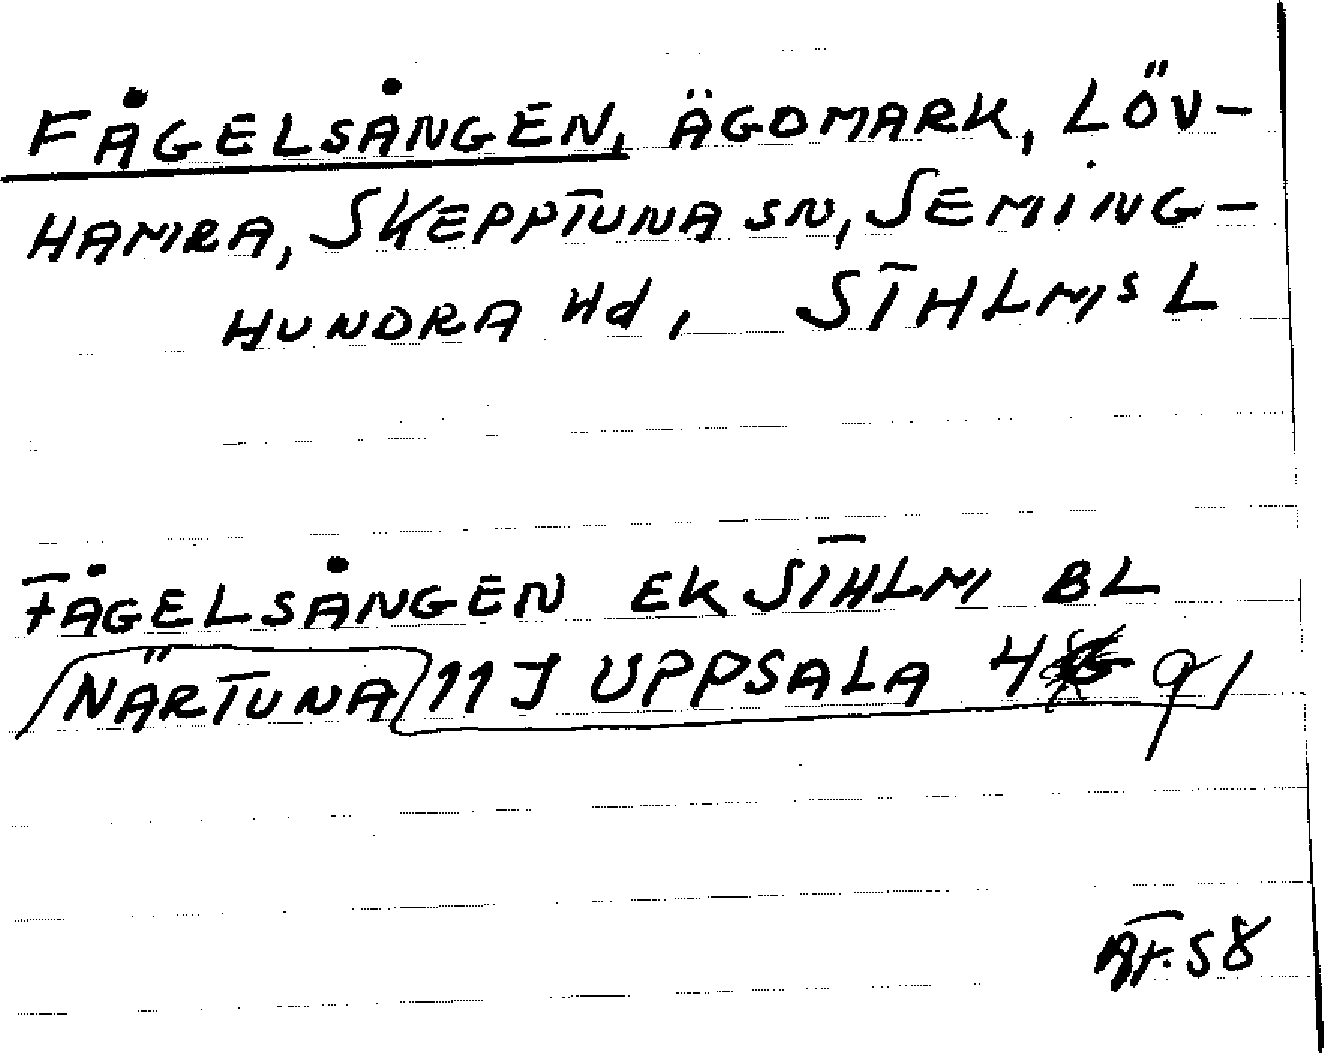 FÅGELSÅNGEN, ÄGOMARK, LÖV-
HAMRA, SKEPPTUNA SN, SEMING-
HUNDRA Hd, STHLMS L
FÅGELSÅNGEN EK STHLM BL
NÄRTUNA 11 J UPPSALA 4 91
58